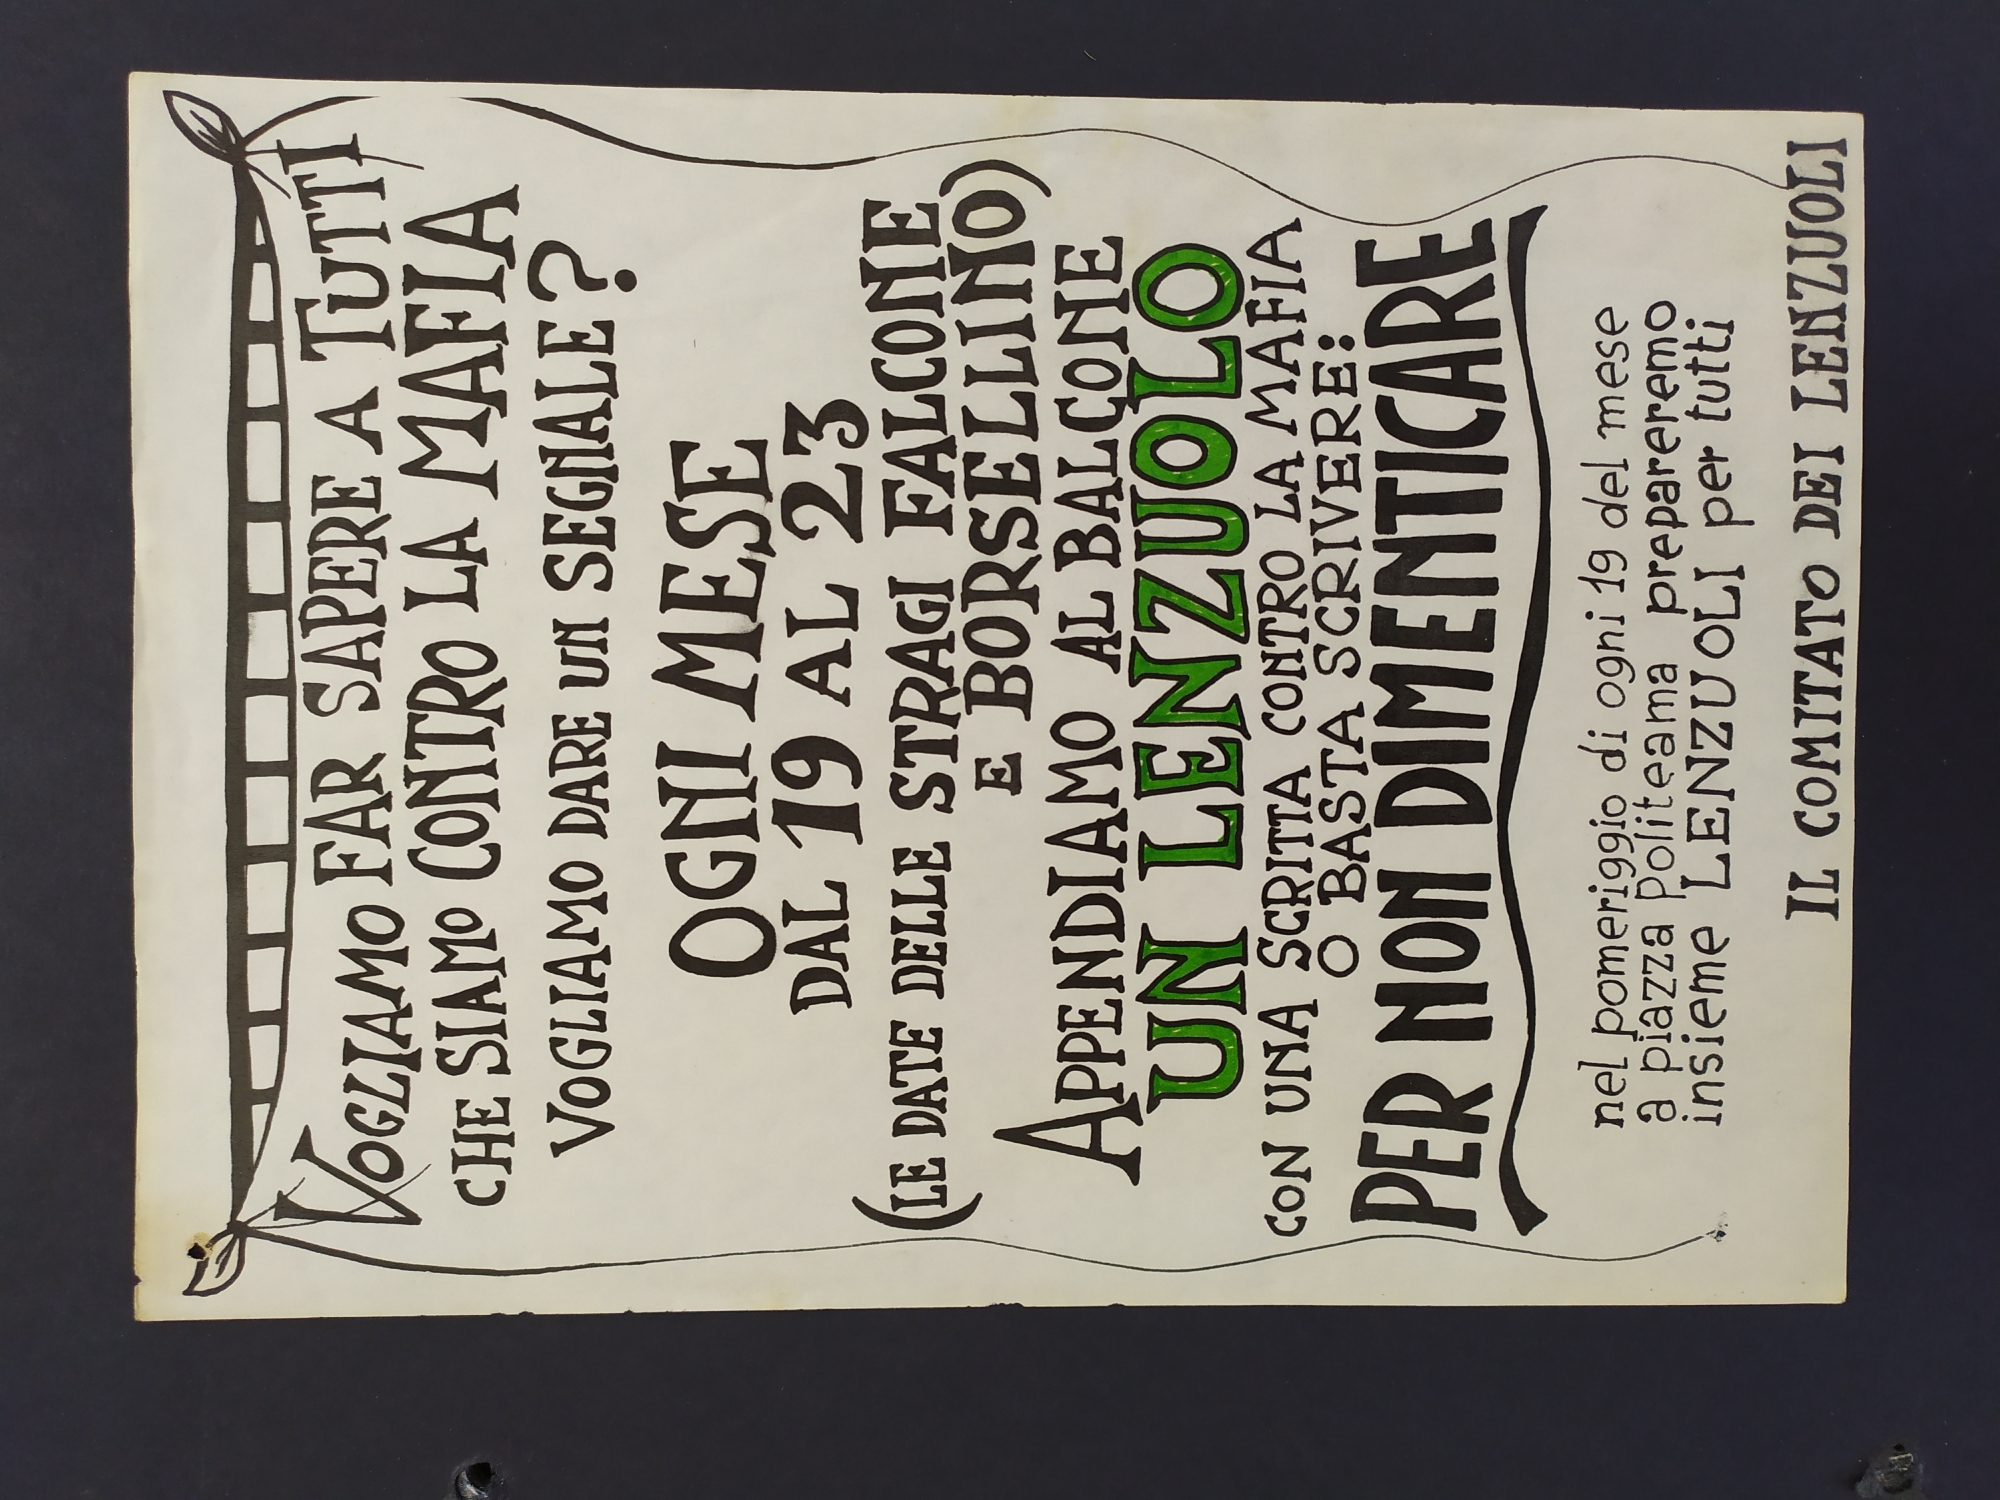 VOGLIAMO FAR SAPERE A TUTTI
CHE SIAMO CONTRO LA MAFIA
VOGLIAMO DARE UN SEGNALE?
OGNI MESE
DAL 19 AL 23
(LE DATE DELLE STRAGI FALCONE
E BORSELLINO)
APPENDIAMO AL BALCONE
UN LENZUOLO
CON UNA SCRITTA CONTRO LA MAFIA
O BASTA SCRIVERE:
PER NON DIMENTICARE
nel pomeriggio di ogni 19 del mese
a piazza Politeama prepareremo
insieme LENZUOLI per tutti
IL COMITATO DEI LENZUOLI